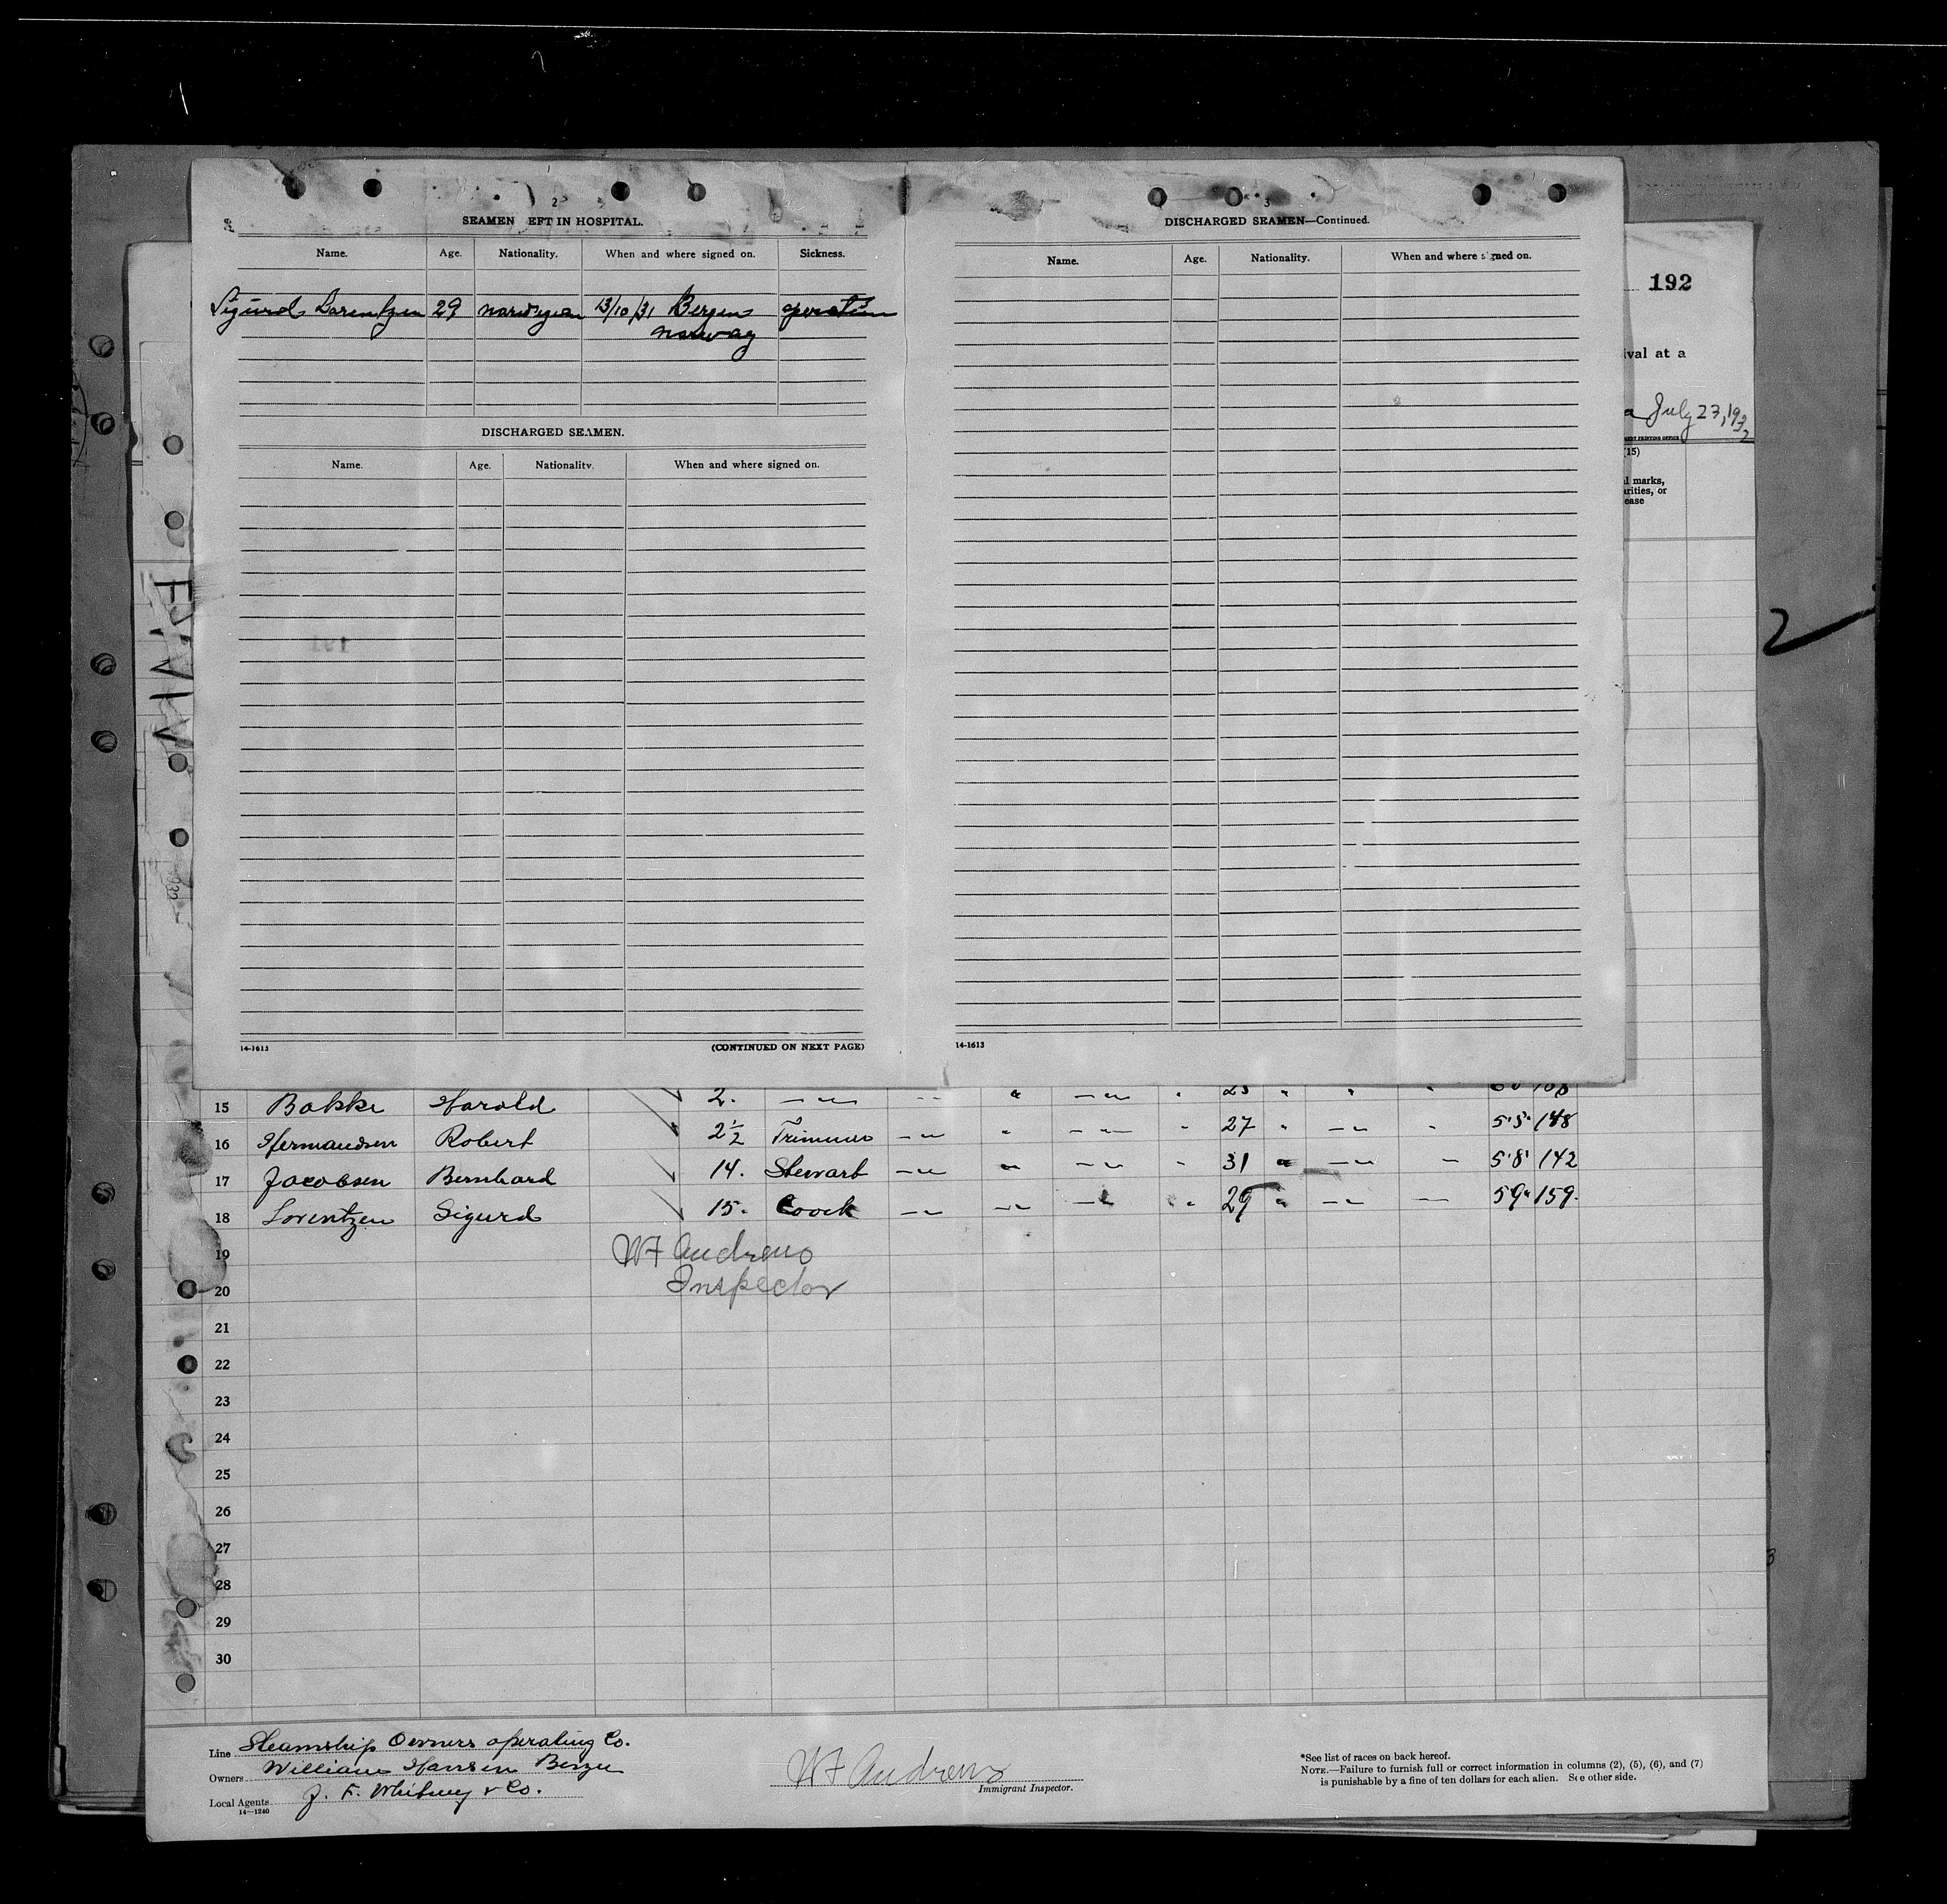 2
SEAMEN EFT IN HOSPITAL.
Name. Age. Nationality. When and where signed on. Sickness.
Sigurd Lorentzen 29 norwegian 13/10/31 Bergen operation
norway
DISCHARGED SEAMEN.
Name. Age. Nationality. When and where signed on.
191
14-1613 (CONTINUED ON NEXT PAGE)
3
DISCHARGED SEAMEN—Continued.
Name. Age. Nationality. When and where signed on.
14-1613
192
ival at a
a July 23, 1932
MENT PRINTING OFFICE
(15)
l marks,
arities, or
ease
2
15 Bakke Harold 2. —〃— 〃 —〃— 〃 25 〃 〃 〃 168
16 Hermandsen Robert 2½ Trimmer —〃— 〃 —〃— 〃 27 〃 —〃— 〃 5'5" 148
17 Jacobsen Bernhard 14. Stewart —〃— 〃 —〃— 〃 31 〃 —〃— 〃 5'8" 142
18 Lorentzen Sigurd 15. Coock —〃— —〃— —〃— 〃 29 〃 —〃— — 5 9" 159.
19 WF Andrews
20 Inspector
21
22
23
24
25
26
27
28
29
30
Line Steamship Owners operating Co.
Owners William Hansen Bergen
Local Agents J. F. Whitney & Co.
14—1240
WF Andrews
Immigrant Inspector.
*See list of races on back hereof.
NOTE.—Failure to furnish full or correct information in columns (2), (5), (6), and (7)
is punishable by a fine of ten dollars for each alien. See other side.